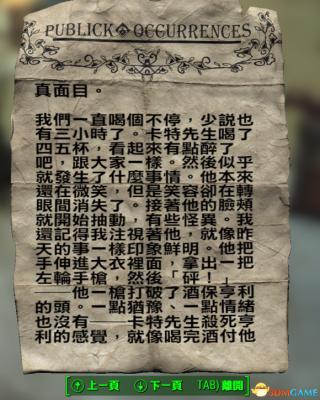 PUBLICK OCCURRENCES
真面目。
我們一直喝個不停，少說也
有三小時了。卡特先生喝了
四五杯，看起來有點醉了
吧，跟大家一樣。然後似乎
就發生了什麼事情。他本來
還在微笑，但是笑容卻在轉
眼間消失了。接著他的臉頰
就開始抽動，有些怪異。我
還記得我注視著他，就像昨
天的事一樣印象鮮明。他把
手伸進大衣裡面，拿出一把
左輪手槍，然後「砰！」
——他一槍打破了酒保亨利
的頭。一點猶豫、一點情緒
也沒有——卡特先生殺死亨
利的感覺，就像喝完酒付他
上一頁 下一頁 TAB) 離開
3DMGAME